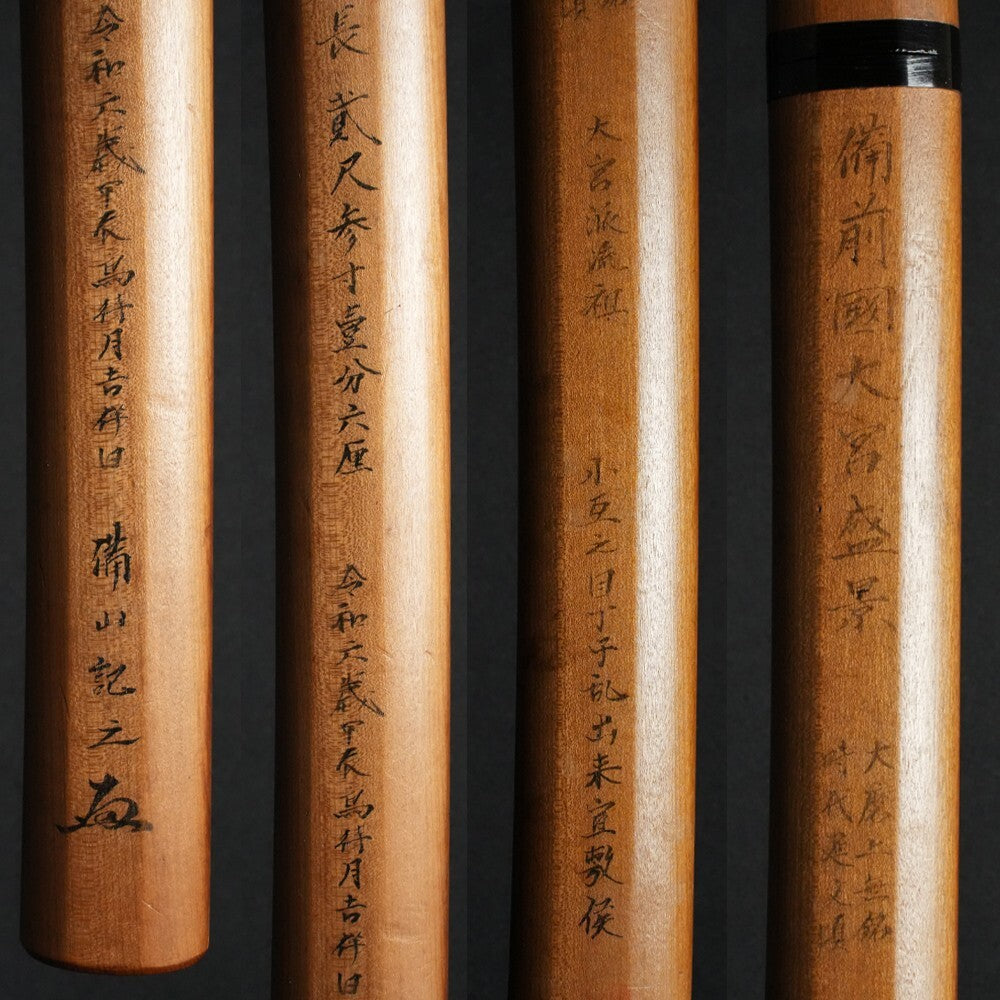 備前國大宮盛景
大磨上無銘
時代延文頃
銘
頃
大宮派流祖 小互之目丁子乱出来宜敷候
長貳尺参寸壹分六厘 令和六歳甲辰 待月吉祥日
令和六歳甲辰 待月吉祥日 備山記之